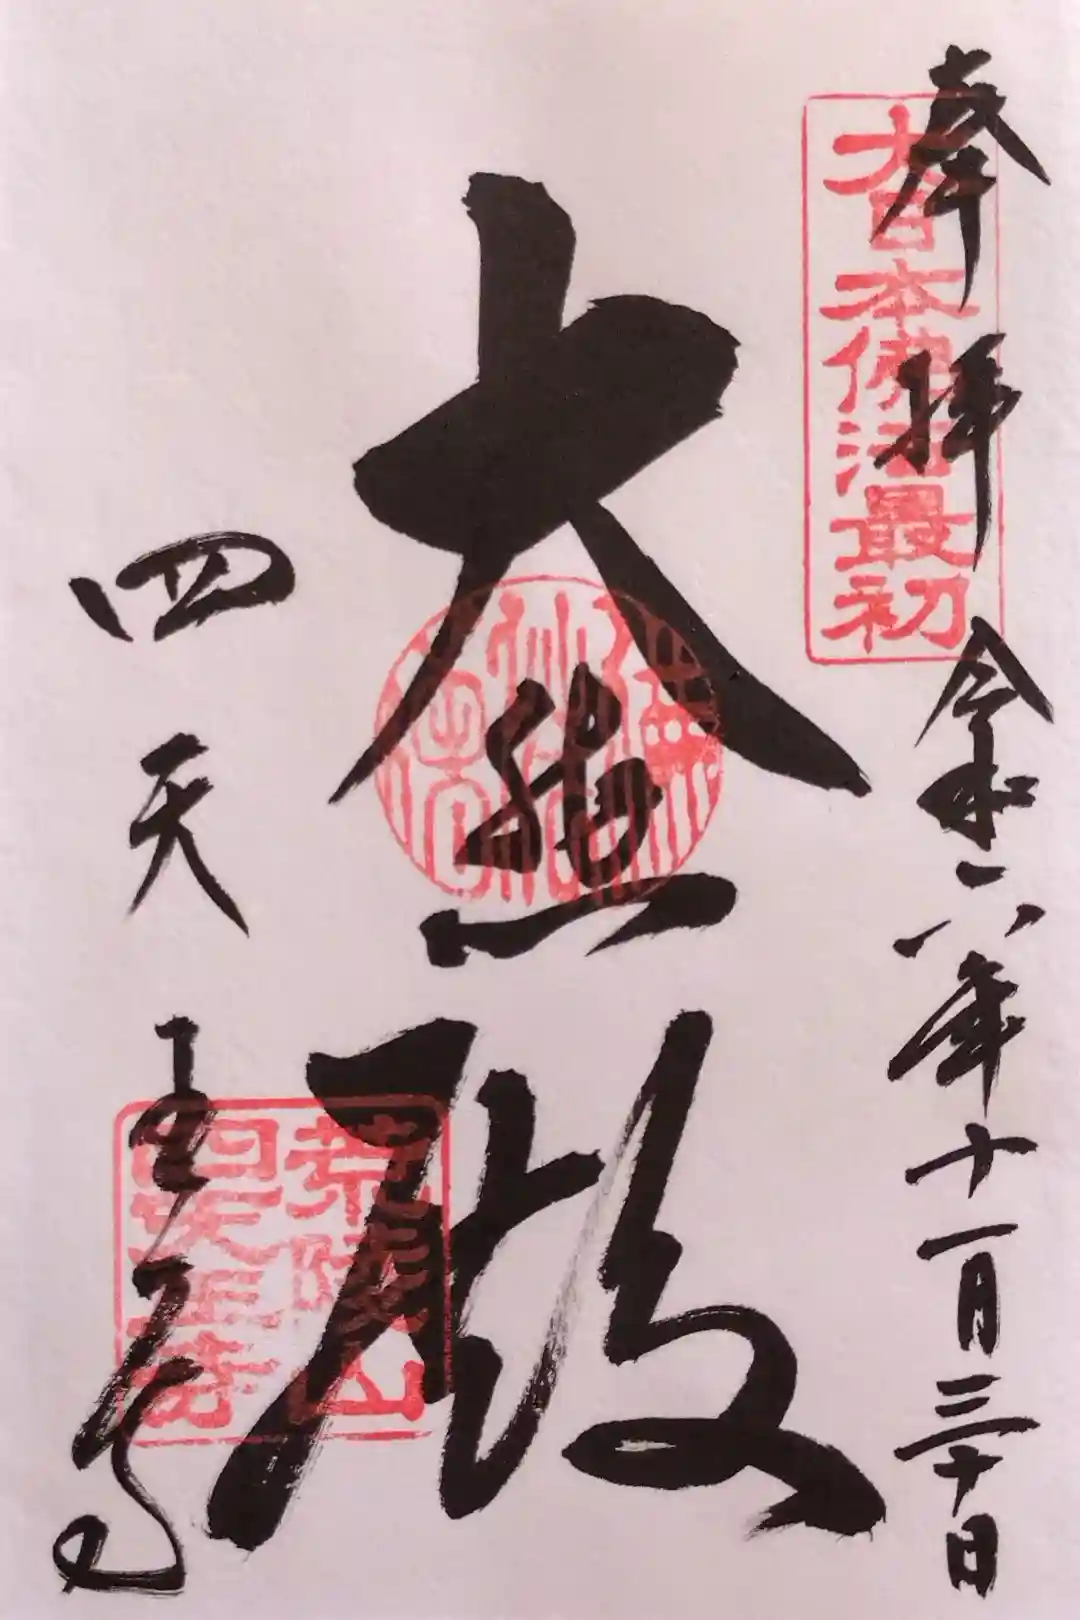 奉拝 令和六年十一月三十日
大日本佛法最初
大悲殿
四天王寺
荒陵山
四天王寺